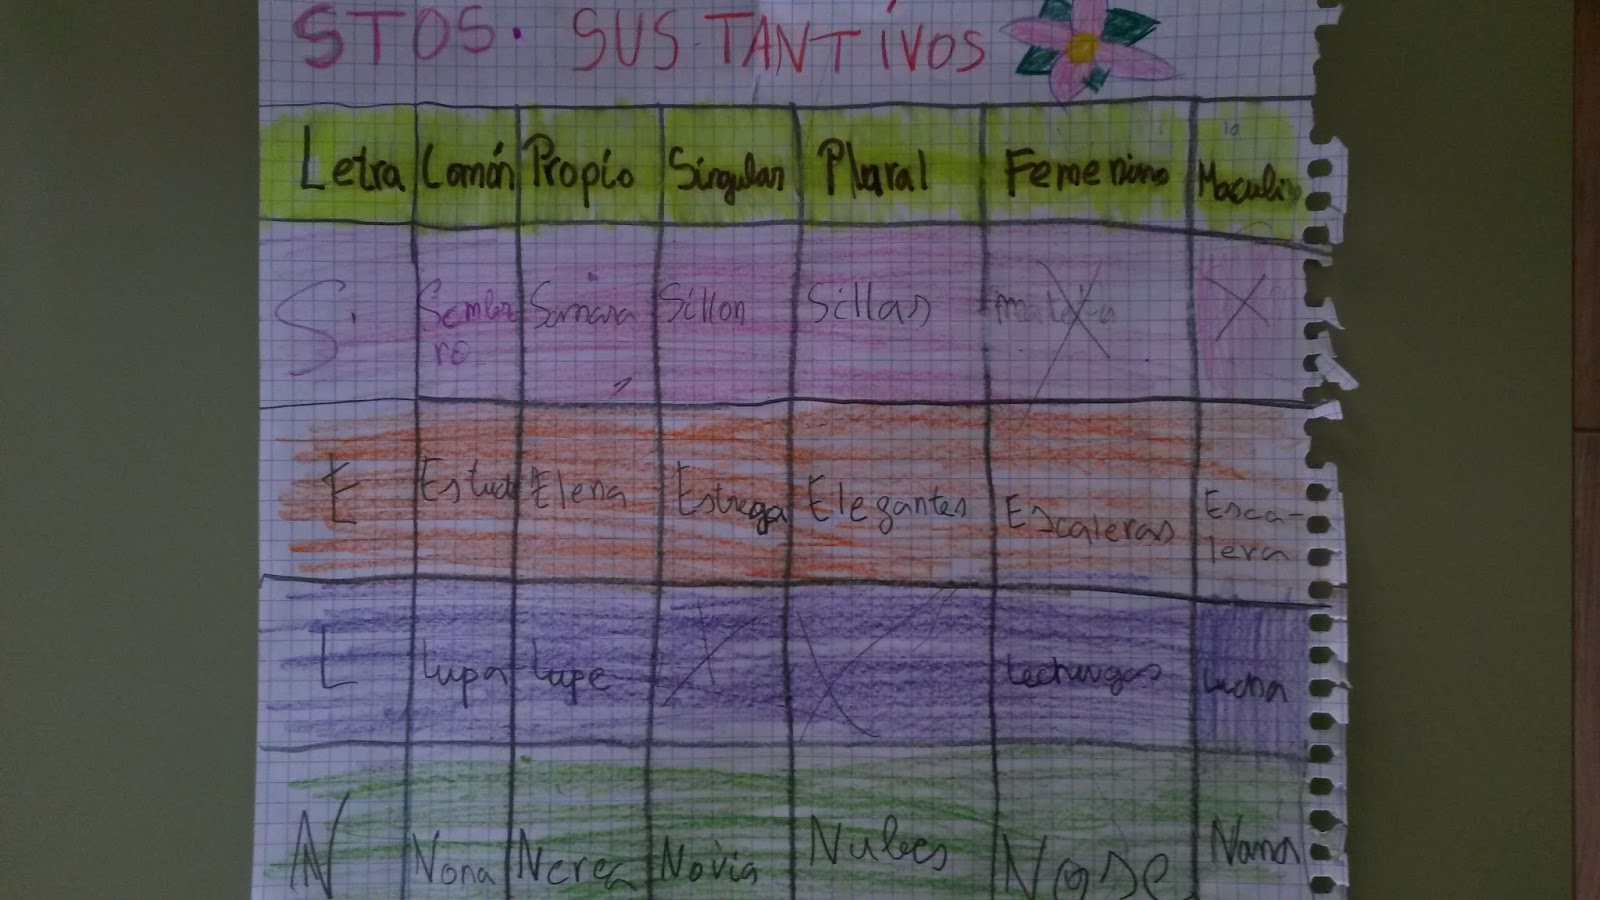 STOS. SUSTANTÍVOS
Letra Común Propio Singular Plural Femenino Masculino
S. Sombre Samara Sillon Sillas
ro
E Estuch Elena Estrega Elegantes Escaleras Esca-
lera
L lupa lupe lechugas lucha
N Nona Nerea Novia Nubes Nose Nana